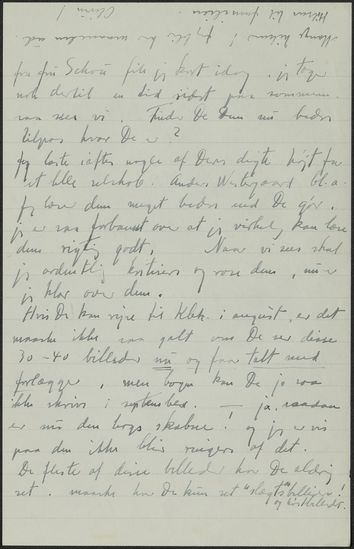 fra fru Schou fik jeg kort idag. jeg tager
nok dertil en tid sidst paa sommeren
saa ses vi. Finder De Dem nu bedre
tilpas hvor De er?
Jeg læste iaftes nogle af Deres digte højt for
et lille selskab. Anders Westergaard bl.a.
Jeg læser dem meget bedre end De gør.
jeg er saa forbauset over at jeg virkelig kan læse
dem rigtig godt. Naar vi ses skal
jeg ordentlig kritisere og rose dem, nu er
jeg klar over dem.
Hvis De kan rejse til i august, er det
maaske ikke saa galt om De ser disse
30-40 billeder nu og faar talt med
forlægger, men bogen kan De jo saa
ikke skrive i september. — ja, saadan
er nu den bogs skæbne! og jeg er vis
paa den ikke blir ringere af det.
De fleste af disse billeder har De aldrig
set. maaske har De kun set "slagtebilleder"!
og
Mange hilsner! Jeg blir her maaneden ud.
Hilsen til familien